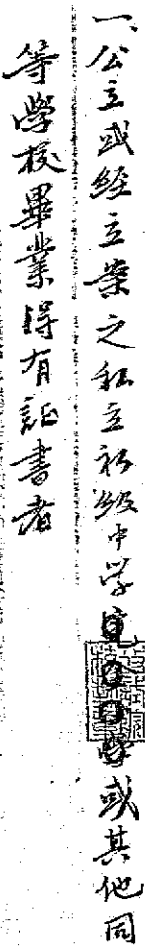 一、公立或经立案之私立初级中学或其他同
等學校畢業得有証書者